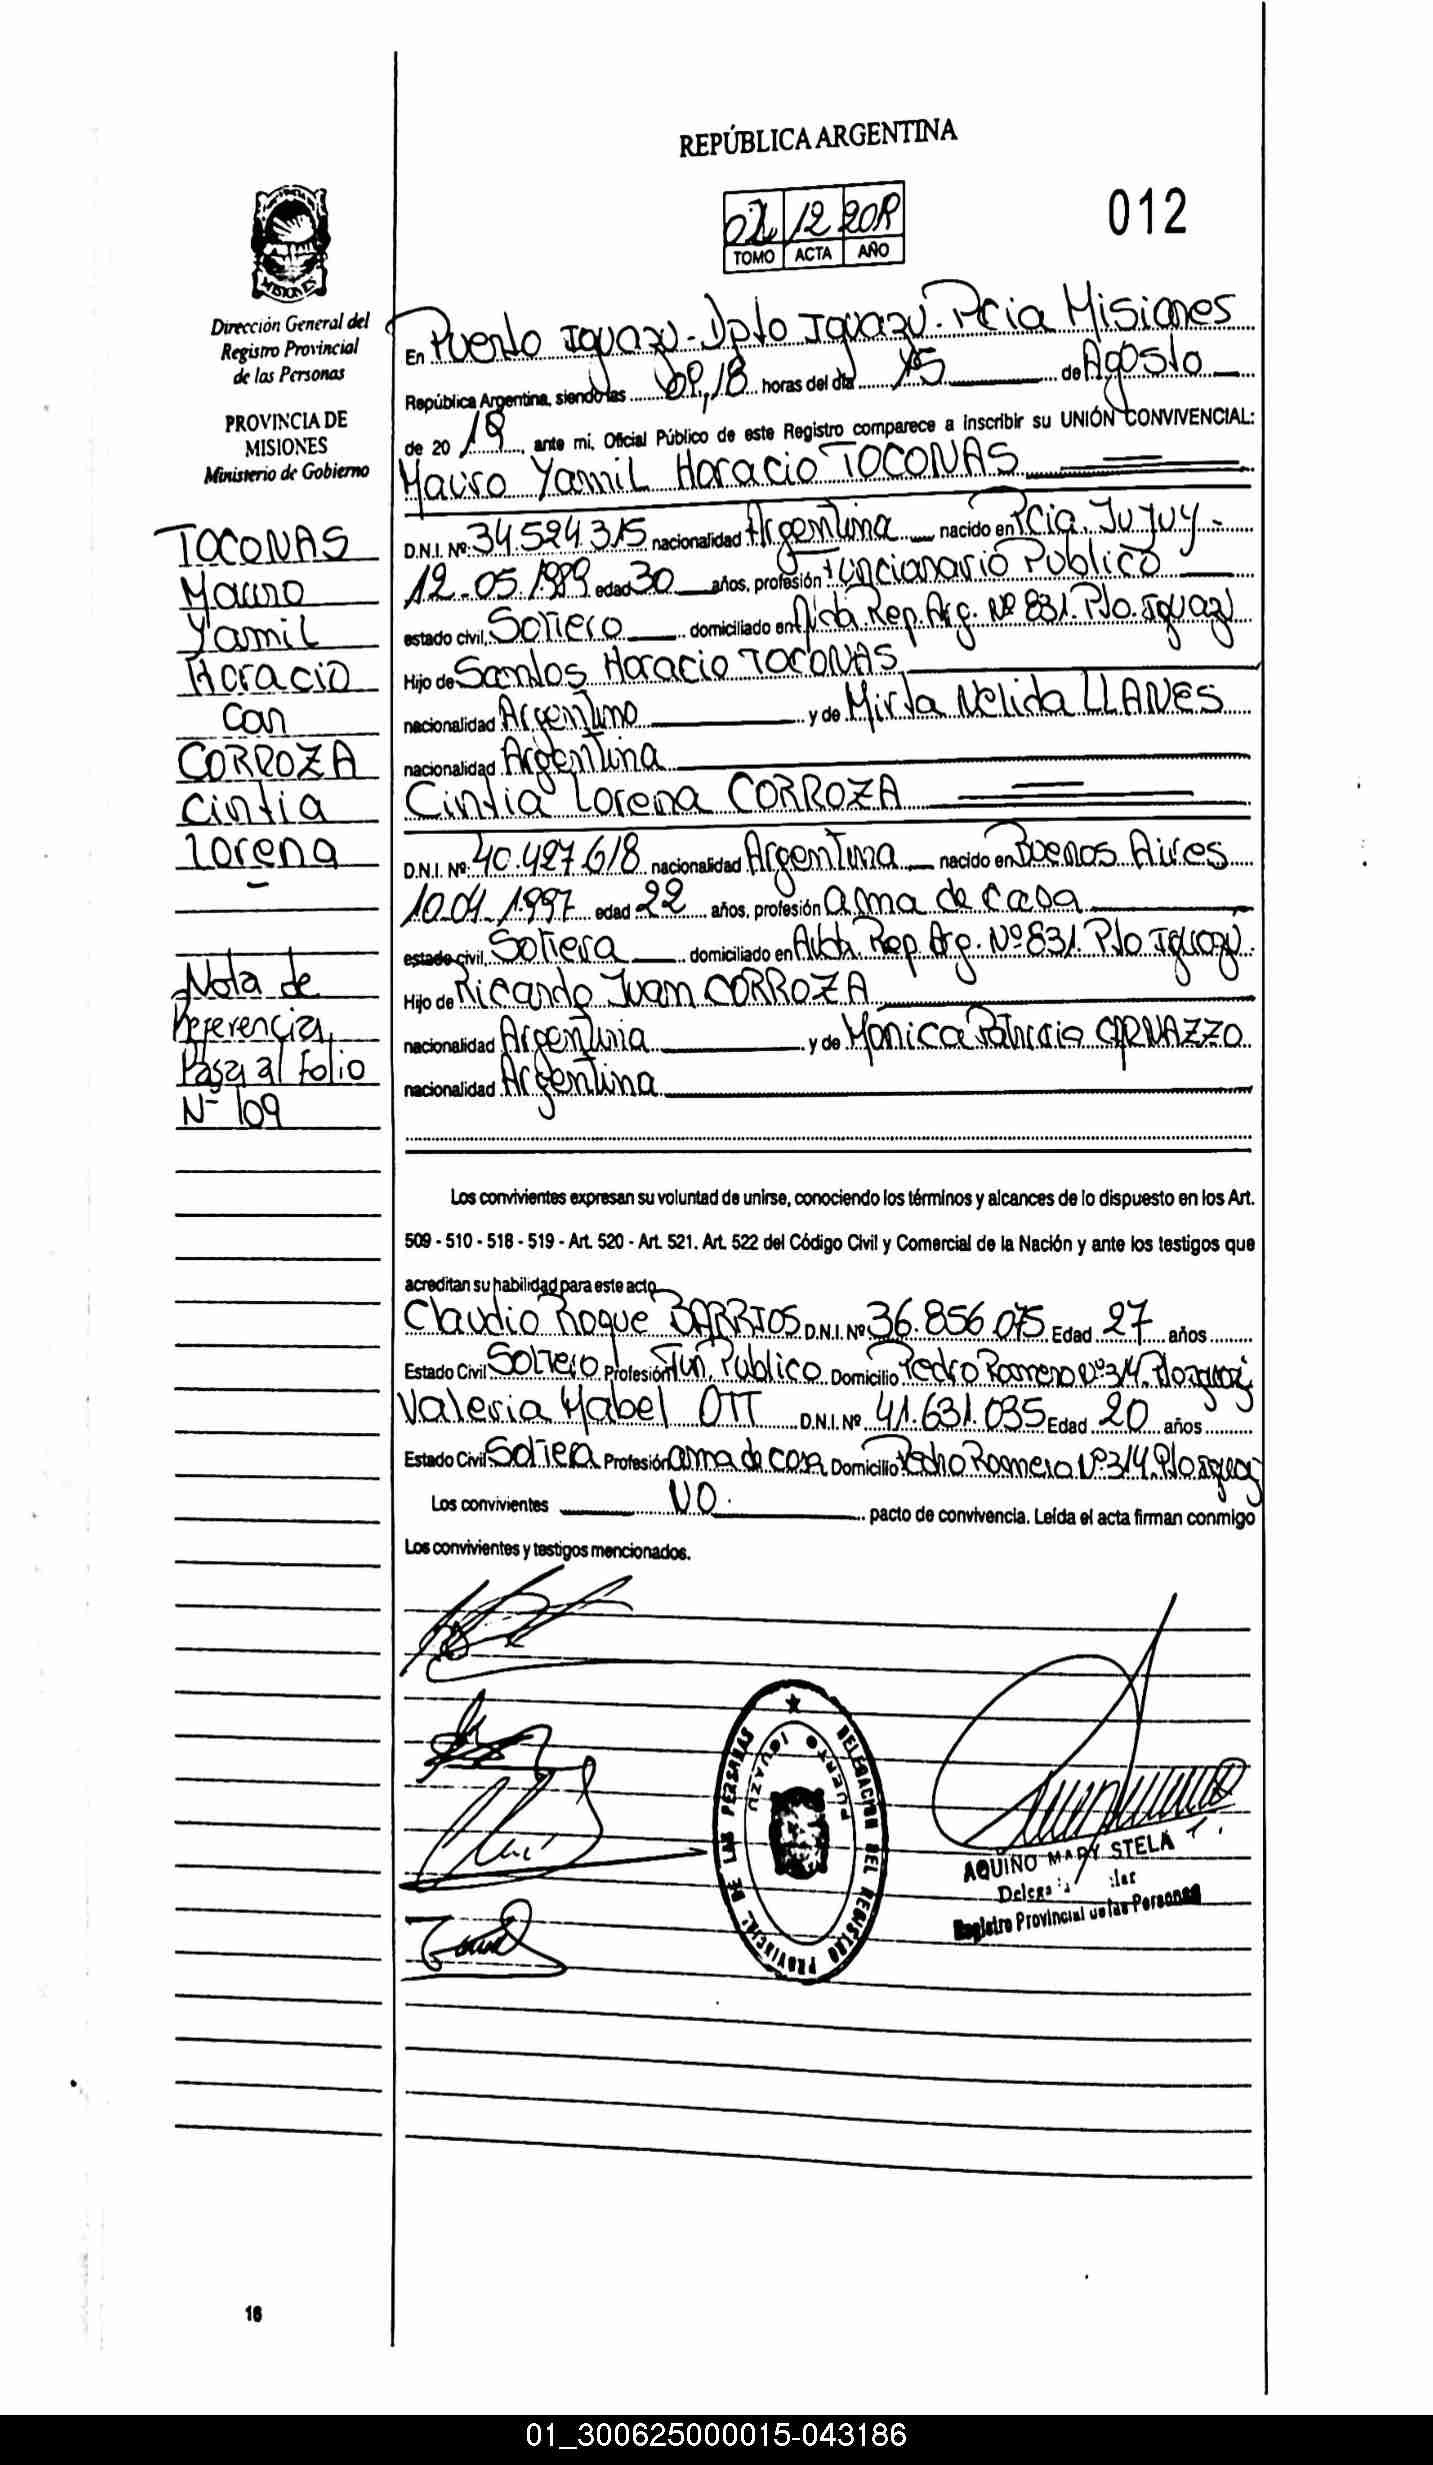 REPÚBLICA ARGENTINA
012
02 12 2019
TOMO ACTA AÑO
MISIONES
Dirección General del
Registro Provincial
de las Personas
PROVINCIA DE
MISIONES
Ministerio de Gobierno
TOCONAS
Mauro
Yamil
Horacio
Con
CORROZA
Cintia
Lorena
Nota de
Referencia
Pasa al folio
Nº 109
En Puerto Iguazu - Dpto Iguazu - Pcia Misiones
República Argentina, siendo las 09,18 horas del día 15 de Agosto
de 2019, ante mi, Oficial Público de este Registro comparece a inscribir su UNIÓN CONVIVENCIAL:
Mauro Yamil Horacio TOCONAS
D.N.I. Nº: 34.524.315 nacionalidad Argentina nacido en Pcia. Jujuy -
12-05-1989 edad 30 años, profesión Funcionario Publico
estado civil, Soltero domiciliado en Avda. Rep. Arg. Nº 831. Pto. Iguazu
Hijo de Santos Horacio TOCONAS
nacionalidad Argentino y de Mirta Nelida LLANES
nacionalidad Argentina
Cintia Lorena CORROZA
D.N.I. Nº: 40.427.618 nacionalidad Argentina nacido en Buenos Aires
10.04.1997 edad 22 años, profesión ama de casa
estado civil, Soltera domiciliado en Avda. Rep. Arg. Nº 831. Pto Iguazu.
Hijo de Ricardo Juan CORROZA
nacionalidad Argentina y de Monica Patricia
nacionalidad Argentina
Los convivientes expresan su voluntad de unirse, conociendo los términos y alcances de lo dispuesto en los Art.
509 - 510 - 518 - 519 - Art. 520 - Art. 521. Art. 522 del Código Civil y Comercial de la Nación y ante los testigos que
acreditan su habilidad para este acto
Claudio Roque BARRIOS D.N.I. Nº 36.856.075 Edad 27 años
Estado Civil Soltero Profesión Fun. Publico Domicilio Pedro Romero Nº 314. Pto Iguazú
Valeria Mabel OTT D.N.I. Nº 41.631.035 Edad 20 años
Estado Civil Soltera Profesión ama de casa Domicilio Pedro Romero Nº 314. Pto Iguazu
Los convivientes NO. pacto de convivencia. Leída el acta firman conmigo
Los convivientes y testigos mencionados.
DELEGACION DEL REGISTRO PROVINCIAL DE LAS PERSONAS
PUERTO IGUAZU
AQUINO MARY STELA
Registro Provincial de las Personas
16
01_300625000015-043186